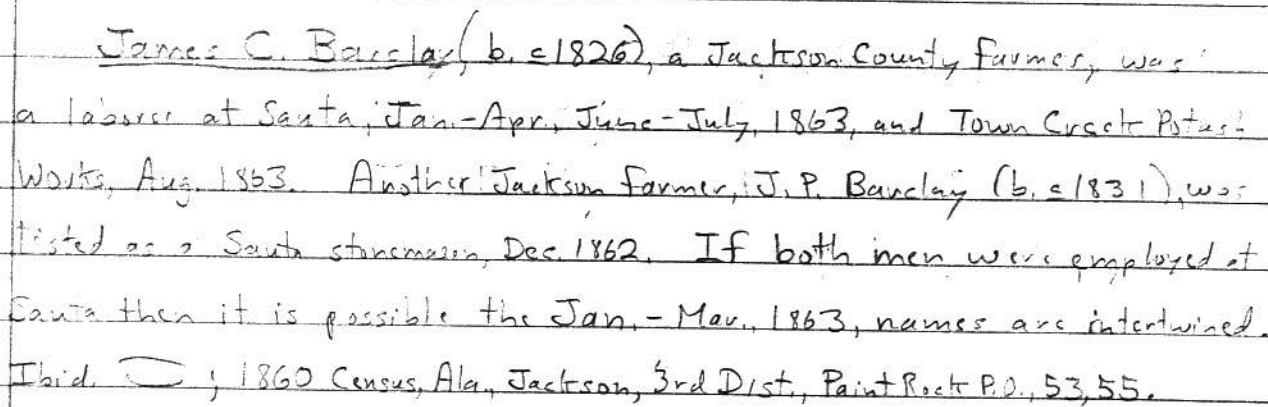 James C. Barclay (b. c1826), a Jackson County farmer, was
a laborer at Sauta, Jan.-Apr., June-July, 1863, and Town Creek Potash
Works, Aug. 1863. Another Jackson farmer, J. P. Barclay (b. c1831), was
listed as a Sauta stonemason, Dec. 1862. If both men were employed at
Sauta then it is possible the Jan.-Mar., 1863, names are intertwined.
Ibid. ; 1860 Census, Ala., Jackson, 3rd Dist., Paint Rock P.O., 53, 55.